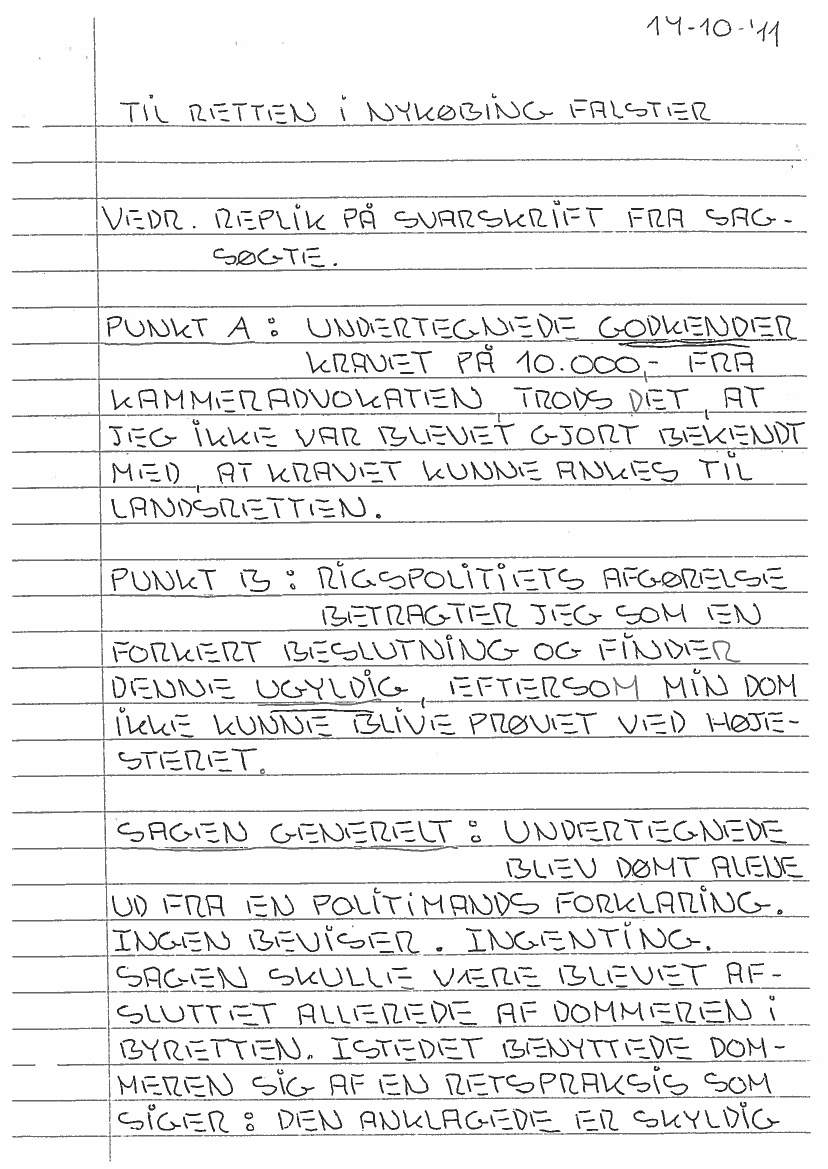 14-10-'11
TIL RETTEN I NYKØBING FALSTER
VEDR. REPLIK PÅ SVARSKRIFT FRA SAG-
SØGTE.
PUNKT A : UNDERTEGNEDE GODKENDER
KRAVET PÅ 10.000,- FRA
KAMMERADVOKATEN, TRODS DET, AT
JEG IKKE VAR BLEVET GJORT BEKENDT
MED, AT KRAVET KUNNE ANKES TIL
LANDSRETTEN.
PUNKT B : RIGSPOLITIETS AFGØRELSE
BETRAGTER JEG SOM EN
FORKERT BESLUTNING OG FINDER
DENNE UGYLDIG, EFTERSOM MIN DOM
IKKE KUNNE BLIVE PRØVET VED HØJE-
STERET.
SAGEN GENERELT : UNDERTEGNEDE
BLEV DØMT ALENE
UD FRA EN POLITIMANDS FORKLARING.
INGEN BEVISER. INGENTING.
SAGEN SKULLE VÆRE BLEVET AF-
SLUTTET ALLEREDE AF DOMMEREN I
BYRETTEN. ISTEDET BENYTTEDE DOM-
MEREN SIG AF EN RETSPRAKSIS SOM
SIGER : DEN ANKLAGEDE ER SKYLDIG